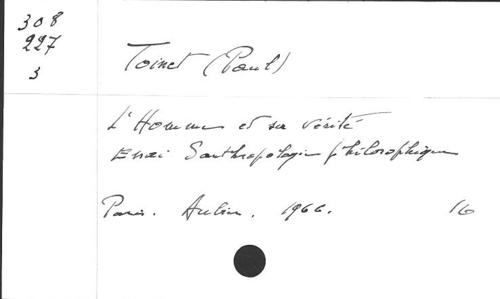 308
227
3
Toinet (Paul)
L'Homme et sa vérité
Essai d'anthropologie philosophique
Paris. Aubier. 1966. 16